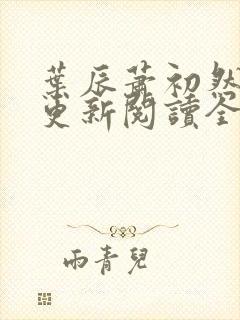 葉辰蕭初然
更新閱讀全
雨青兒